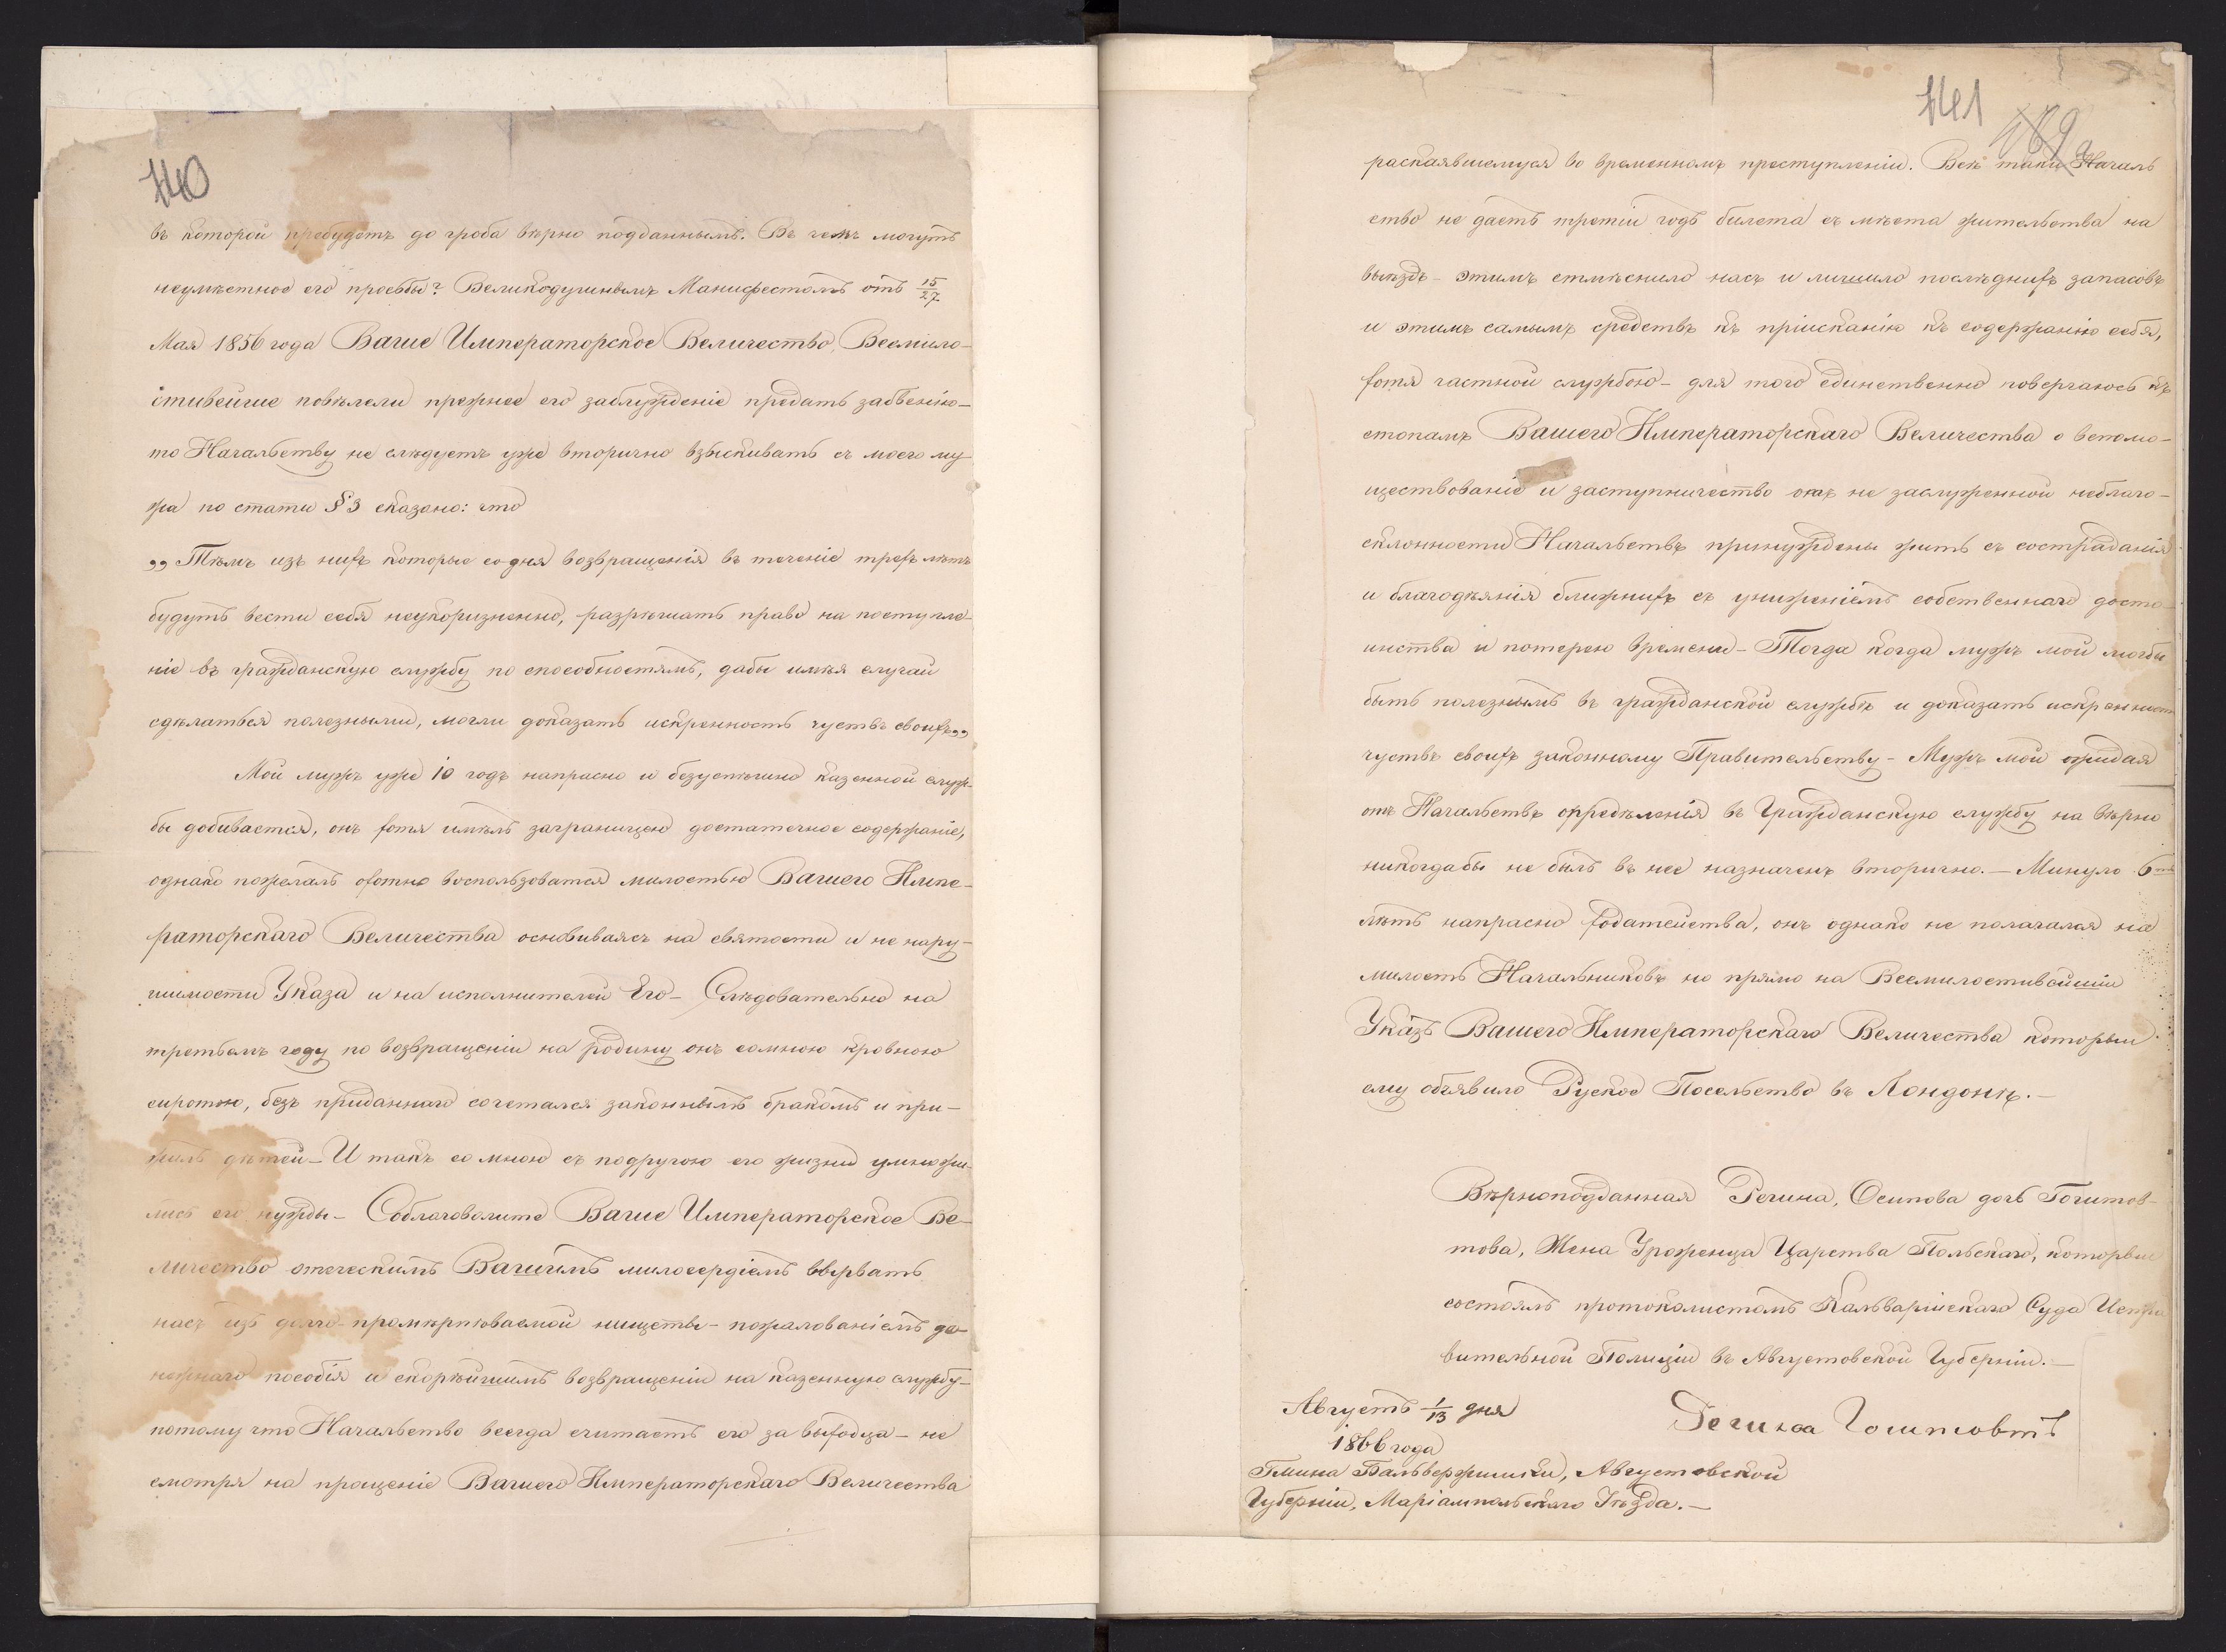 140
въ которой пребудетъ до гроба вѣрно подданнымъ. Въ чемъ могутъ
неумѣстное его просьбы? Великодушнымъ Манифестомъ отъ 15/27
Мая 1856 года Ваше Императорское Величество, Всемило-
стивейше повѣлели прежнее его заблужденіе предать забвенію-
то Начальству не слѣдуетъ уже вторично взыскивать съ моего му
жа по стати §3 сказано: что
„Тѣмъ изъ нихъ которые со дня возвращенія въ теченіе трехъ лѣтъ
будутъ вести себя неукоризненно, разрѣшать право на поступле-
ніе въ гражданскую службу по способностямъ, дабы имѣя случай
сдѣлаться полезными, могли доказать искренность чуствъ своихъ„
Мой мужъ уже 10 годъ напрасно и безуспѣшно казенной служ-
бы добивается, онъ хотя имѣлъ заграницею достаточное содержаніе,
однако пожелалъ охотно воспользоватся милостью Вашего Импе-
раторскаго Величества основиваясь на святости и не нару-
шимости Указа и на исполнителей Его- Слѣдовательно на
третьемъ году по возвращеніи на родину онъ сомною кровною
сиротою, безъ приданнаго сочетался законнымъ бракомъ и при-
жилъ дѣтей- И такъ со мною съ подругою его жизни умножи-
лись его нужды- Соблаговолите Ваше Императорское Ве-
личество отеческимъ Вашимъ милосердіемъ ввырвать
насъ изъ долго промѣрпѣваемой нищеты- пожалованіемъ де-
нежнаго пособія и скорѣйшимъ возвращеніи на казенную службу-
потому что Начальство всегда считаетъ его за выходца- не
смотря на прощеніе Вашего Императорскаго Величества
141
189
раскаявшемуся во временномъ преступленіи. Все таки Началь
ство не даетъ третій годъ билета съ мѣста жительства на
выѣздъ- этимъ стмѣснило насъ и лишило послѣднихъ запасовъ
и этимъ самымъ средствъ къ пріисканію къ содержанію себя,
хотя частной службою- для того единственно повергаюсь къ
стопамъ Вашего Императорскаго Величества о вспомо-
ществованіе и заступничество онаъ не заслуженной неблаго-
склонности Начальствъ принуждены жить съ состраданія
и благодѣянія ближнихъ съ униженіемъ собственнаго досто-
инства и потерею времени- Тогда когда мужъ мой могъбы
быть полезнымъ въ гражданской службѣ и доказать искренность
чуствъ своихъ законному Правительству- Мужъ мой ожидая
отъ Начальствъ определенія въ Гражданскую службу на вѣрно
никогдабы не былъ въ нее назначенъ вторично.- Минуло 6ть
лѣтъ напрасно ходатейства, онъ однако не полагался на
милость Начальниковъ но прямо на Всемилостивейшій
Указъ Вашего Императорскаго Величества который
ему объявило Руское Посельство въ Лондонѣ.-
Вѣрноподданная Регина, Осипова дочь Гоштов-
това, Жена Уроженца Царства Польскаго, который
состоялъ протоколистомъ Кальварійскаго Суда Испра
вительной Полиціи въ Августовской Губерніи.-
Августъ 1/13 дня
1866 года
Регина Гоштовтъ
Гмина Бальвержишки, Августовской
Губерніи, Маріампольскаго Уѣзда.-